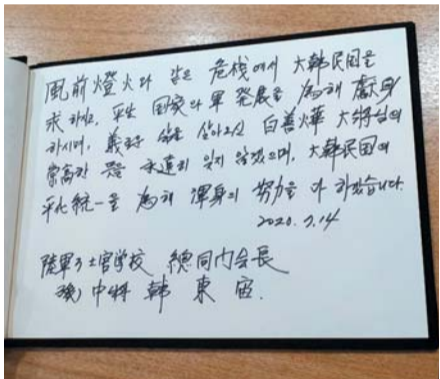 風前燈火와 같은 危機에서 大韓民国을
求하고, 平生 国家와 軍 発展을 為해 獻身
하시며, 義로운 삶을 살아오신 白善燁 大將님의
崇高한 뜻을 永遠히 잊지 않겠으며, 大韓民国의
平化統一을 為해 渾身의 努力을 다 하겠습니다.
2020. 7. 14
陸軍3士官学校 總同门会長
中将 韓 東 宙.